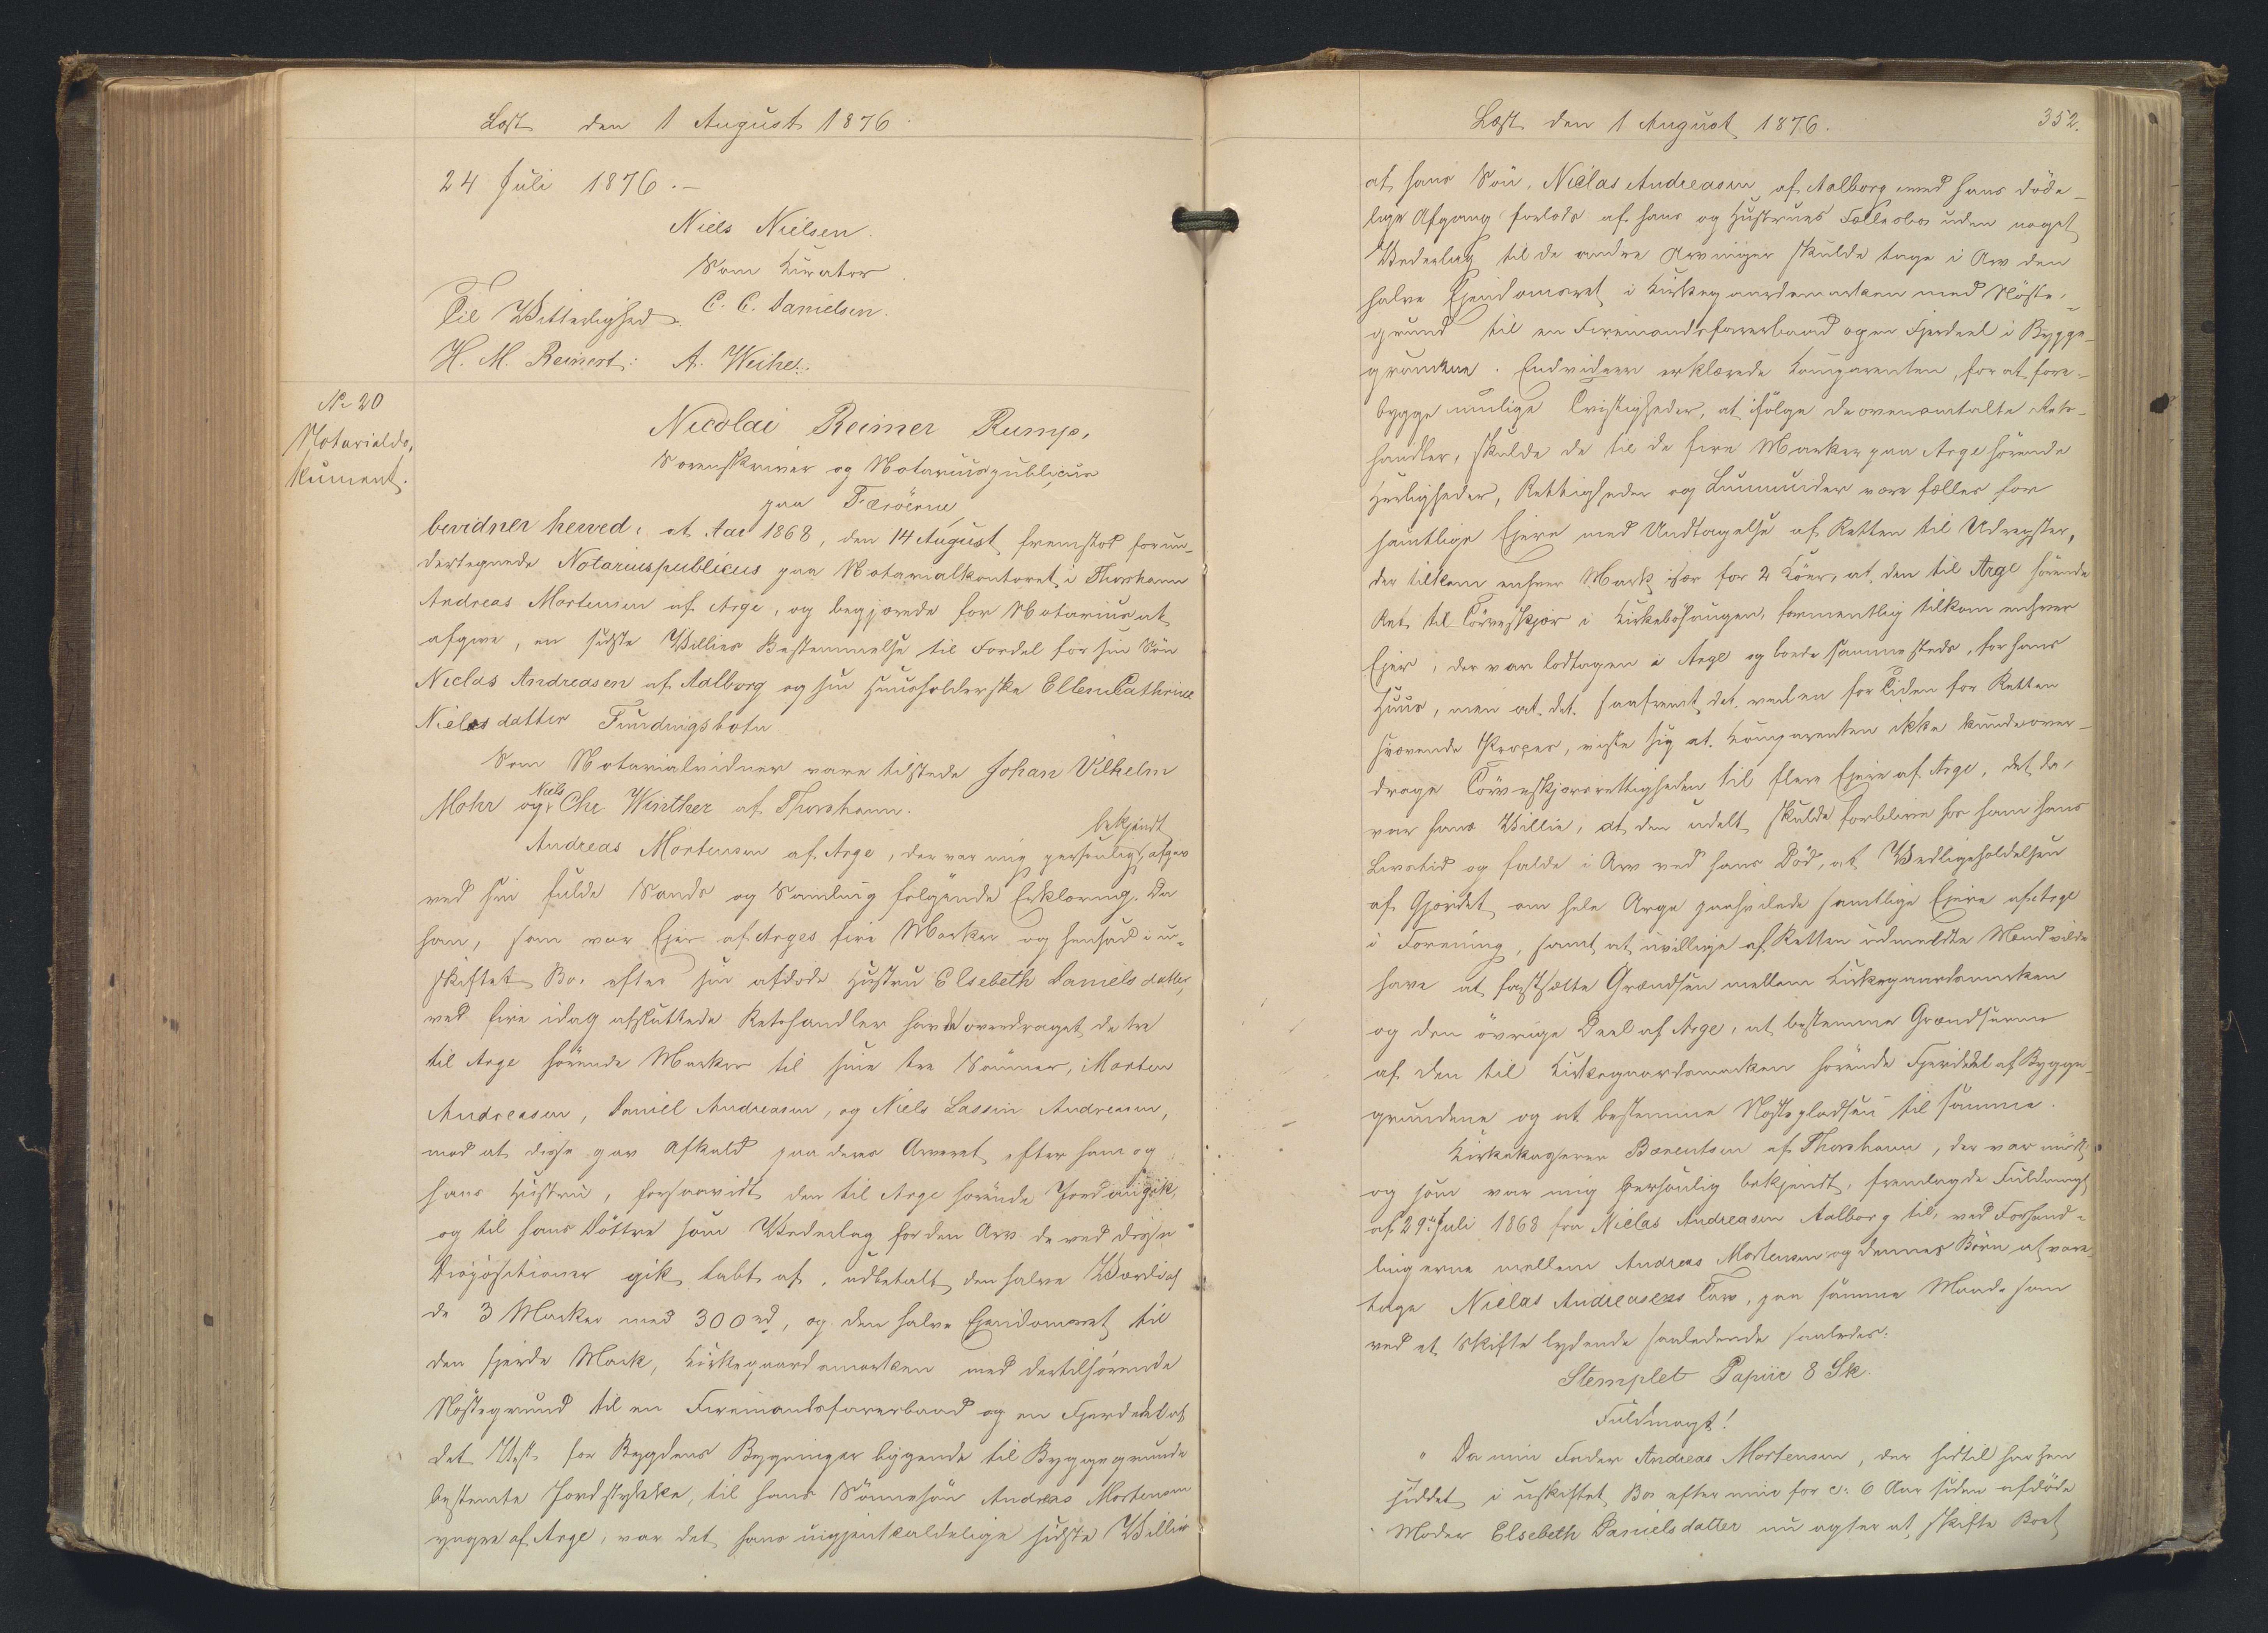 Læst den 1 August 1876.
24 Juli 1876.-
Niels Nielsen.
Som Kurator
C. C. Danielsen.
Til Vitterlighed
H. M. Reinert: A. Weihe.
No 20
Notarialdo-
kument.
Nicolai Reimer Rump,
Sorenskriver og Notarius publicus
paa Færöerne
bevidner herved: at Aar 1868, den 14 August fremstod for un-
dertegnede Notarius publicus paa Notarialkontoret i Thorshavn
Andreas Mortensen af Arge, og begjærede for Notarius at
afgive, en sidste Villies Bestemmelse til Fordel for sin Sön
Niclas Andreasen af Aalborg og sin Huusholderske Ellen Cathrine
Nielsdatter Fundingsbotn
Som Notarialvidner vare tilstede Johan Vilhelm
Mohr og Niels Chr Winther af Thorshavn.
Andreas Mortensen af Arge, der var mig personlig bekjendt, afgav
ved sin fulde Sands og Samling fölgende Erklæring. Da
han, som var Ejer af Arges fire Marker og hensad i u-
skiftet Bo, efter sin afdöde Hustru Elsebeth Daniels datter,
ved fire idag afsluttede Retshandler havde overdraget de tre
til Arge hörende Marker til sine tre Sönner, Morten
Andreasen, Daniel Andreasen, og Niels Lassin Andreasen,
mod at disse gav Afkald paa deres Arveret efter ham og
hans Hustru, forsaavidt den til Arge hörende Jord angik,
og til hans Döttre som Vederlag for den Arv de ved disse
Dispositioner gik tabt af, udbetalt den halve Værdi af
de 3 Marker med 300 rd, og den halve Ejendomsret til
den fjerde Mark, Kirkegaardsmarken med dertilhörende
Nöstegrund til en Firemandsfarerbaad og en Fjerdedel af
det Vest for Bygdens Bygninger liggende til Byggegrunde
bestemte Jordstykke, til hans Sönnesön Andreas Mortensen
yngre af Arge, var det hans uigjenkaldelige sidste Villie
Læst den 1 August 1876.
352.
at hans Sön, Niclas Andreasen af Aalborg med hans döde-
lige Afgang forlods af hans og Hustrues Fællesbo uden noget
Vederlag til de andre Arvinger skulde tage i Arv den
halve Ejendomsret i Kirkegaardsmarken med Nöste-
grund til en Firemandsfarerbaad og en Fjerdeel i Bygge-
grundene. Endvidere erklærede Komparenten, for at fore-
bygge mulige Tvistigheder, at ifölge de ovenomtalte Rets-
handler, skulde de til de fire Marker paa Arge hörende
Herligheder, Rettigheder og Lunnunder være fælles for
samtlige Ejere med Undtagelse af Retten til Udregster,
der tilkom enhver Mark især for 2 Köer, at den til Arge hörende
Ret til Törveskjær i Kirkeböhaugen, formentlig tilkom enhver
Ejer, der var lodtagen i Arge og boede sammesteds, for hans
Huus, men at det saafremt det ved en for Tiden for Retten
svævende Proces, viste sig at Komparenten ikke kunde over-
drage Törveskjærsrettigheden til flere Ejere af Arge, det da
var hans Villie, at den udelt skulde forblive hos ham hans
Livstid og falde i Arv ved hans Död, at Vedligeholdelsen
af Gjærdet om hele Arge paahvilede samtlige Ejere af Arge
i Forening, samt at uvillige af Retten udmeldte Mænd vilde
have at fastsætte Grændsen mellem Kirkegaardsmarken
og den övrige Deel af Arge, at bestemme Grændserne
af den til Kirkegaardsmarken hörende Fjerdedel af Bygge-
grundene og at bestemme Nöstepladsen til samme.
Kirkekasserer Bærentsen af Thorshavn, der var mödt
og som var mig personlig bekjendt, fremlagde Fuldmagt
af 29de Juli 1868 fra Niclas Andreasen Aalborg til, ved Forhand-
lingerne mellem Andreas Mortensen og dennes Börn at vare-
tage Niclas Andreasens Tarv, paa samme Maade som
ved et Skifte lydende saaledende saaledes:
Stemplet Papiir 8 Sk.
Fuldmagt!
" Da min Fader Andreas Mortensen, der hidtil har hen
siddet i uskiftet Bo efter min for c: 6 Aar siden afdöde
Moder Elsebeth Daniels datter nu agter at skifte Boet